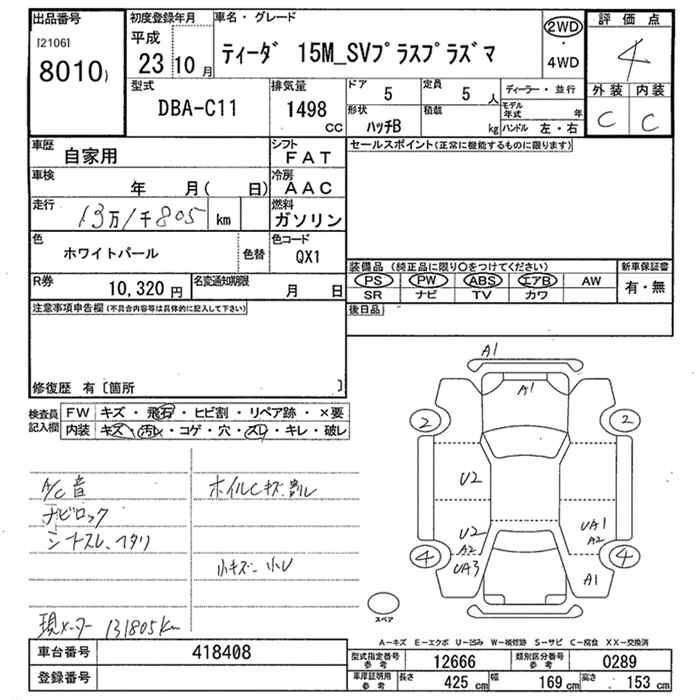 出品番号
[2106]
8010)
初度登録年月
平成
23年10月
車名・グレード
ティーダ 15M_SVプラスプラズマ
2WD
・
4WD
評価点
4
外装 内装
C C
型式
DBA-C11
排気量
1498
CC
ドア
5
定員
5人
形状
ハッチB
積載
kg
ディーラー・並行
モデル年式 年
ハンドル 左・右
車歴
自家用
シフト
FAT
セールスポイント(正常に機能するものに限ります)
車検
年 月( 日)
冷房
AAC
走行
13万1千805 km
燃料
ガソリン
色
ホワイトパール
色替
色コード
QX1
装備品 (純正品に限り○をつけてください)
PS PW ABS エアB AW
SR ナビ TV カワ
新車保証書
有・無
R券
10,320 円
名変通知期限
月 日
後日品
注意事項申告欄(不具合内容等は具体的に記入して下さい)
修復歴 有〔箇所 〕
検査員
記入欄
FW キズ・飛石・ヒビ割・リペア跡・×要
内装 キズ・汚レ・コゲ・穴・スレ・キレ・破レ
A/C音
ナビロック
シートスレ、ヘタリ
現メーター 131805km
ホイルCキズ、割レ
小キズ 小U
A1
A1
2 2
U2
U2
A2
UA3
UA1
A2
A1
4 4
スペア
A-キズ E-エクボ U-凹み W-補修跡 S-サビ C-腐食 XX-交換済
車台番号
418408
登録番号
型式指定番号
参考
12666
類別区分番号
参考
0289
車庫証明用
参考
長さ 425 cm
幅 169 cm
高さ 153 cm